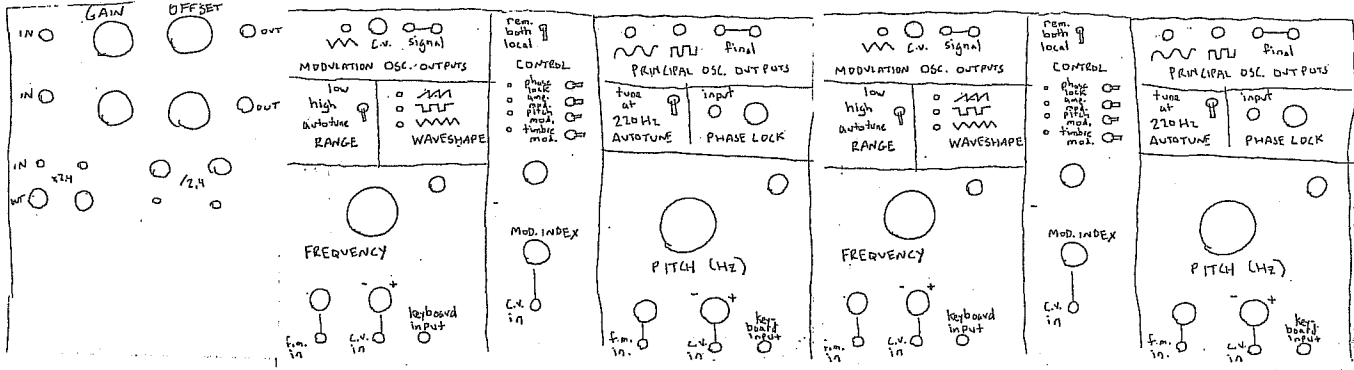 GAIN OFFSET
IN OUT
IN OUT
IN
x2.4 /2.4
OUT
C.V. signal
MODULATION OSC. OUTPUTS
low
high
autotune
RANGE
WAVESHAPE
FREQUENCY
f.m.
in
C.V.
in
keyboard
input
rem.
both
local
CONTROL
phase
lock
amp.
mod.
pitch
mod.
timbre
mod.
MOD. INDEX
C.V.
in
final
PRINCIPAL OSC. OUTPUTS
tune
at
220Hz
AUTOTUNE
input
PHASE LOCK
PITCH (Hz)
f.m.
in.
C.V.
in
key-
board
input
C.V. signal
MODULATION OSC. OUTPUTS
low
high
autotune
RANGE
WAVESHAPE
FREQUENCY
f.m.
in
C.V.
in
keyboard
input
rem.
both
local
CONTROL
phase
lock
amp.
mod.
pitch
mod.
timbre
mod.
MOD. INDEX
C.V.
in
final
PRINCIPAL OSC. OUTPUTS
tune
at
220Hz
AUTOTUNE
input
PHASE LOCK
PITCH (Hz)
f.m.
in.
C.V.
in
key-
board
input